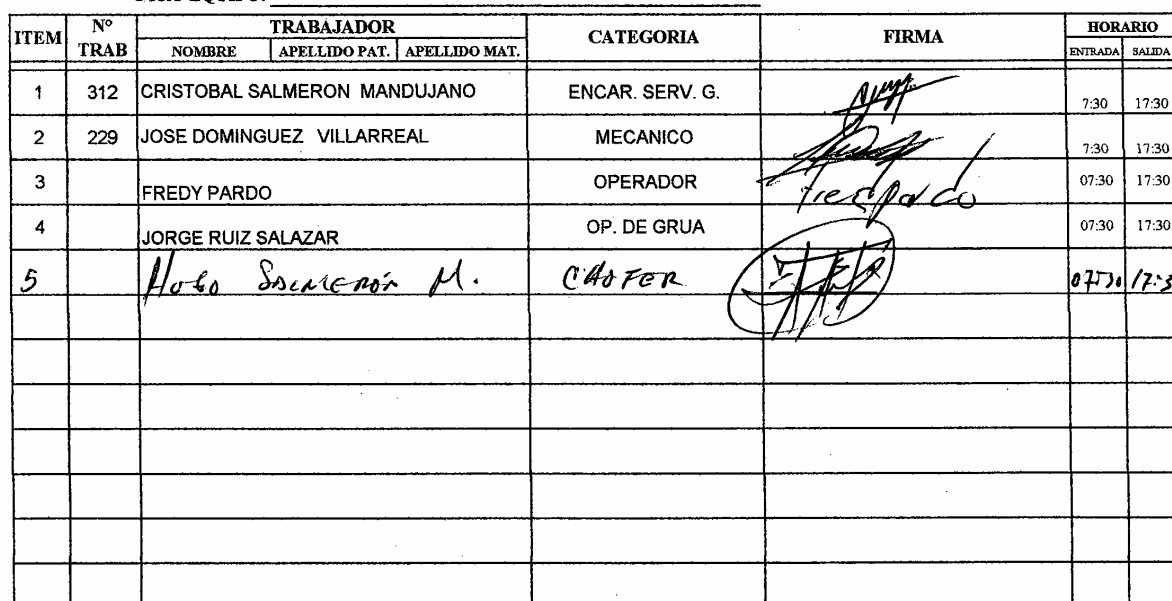 ITEM N° TRAB TRABAJADOR CATEGORIA FIRMA HORARIO
NOMBRE APELLIDO PAT. APELLIDO MAT. ENTRADA SALIDA
1 312 CRISTOBAL SALMERON MANDUJANO ENCAR. SERV. G. 7:30 17:30
2 229 JOSE DOMINGUEZ VILLARREAL MECANICO 7:30 17:30
3 FREDY PARDO OPERADOR Fredy Pardo 07:30 17:30
4 JORGE RUIZ SALAZAR OP. DE GRUA 07:30 17:30
5 HUGO SALMERÓN M. CHOFER 07:30 17:3